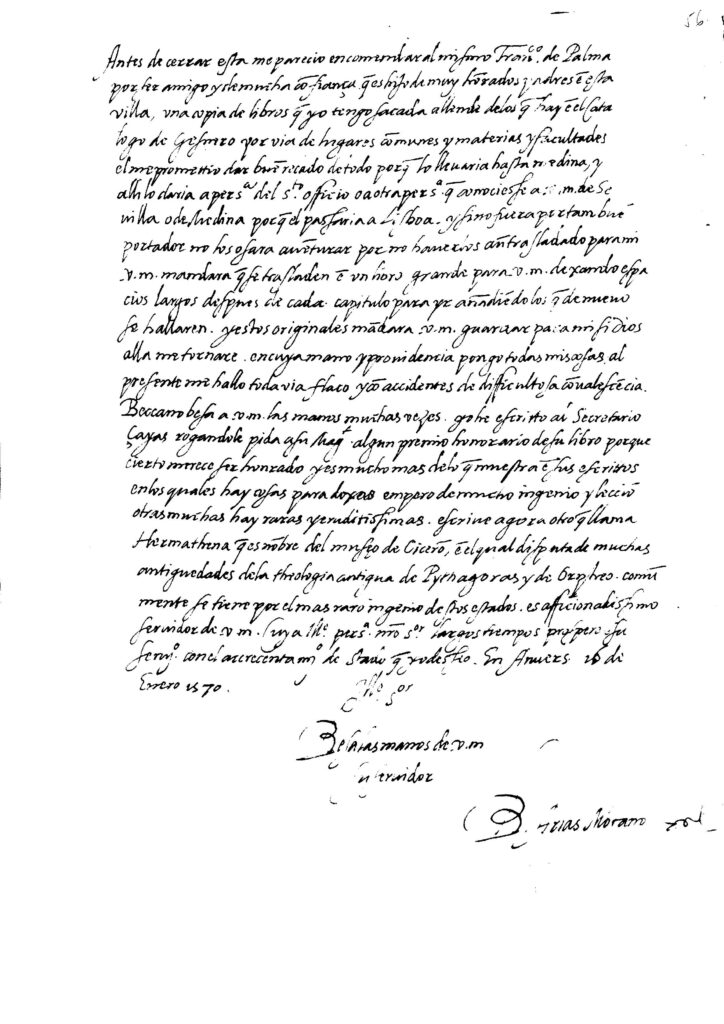 56.
Antes de cerrar esta me parecio encomendar al mismo Franco de Palma
por ser amigo y de mucha cõfiança q̃ es hijo de muy hõrados padres ẽ esta
villa, una copia de libros q̃ yo tengo sacada allende de los q̃ hay ẽ el Cata
logo de Gesnero por via de lugares comunes y materias y facultades
el me prometio dar buẽ recado de todo porq̃ lo lleuaria hasta medina, y
alli lo daria a persa del sto officio o a otra persa q̃ conociesse a v.m. de Se
villa o de Medina porq̃ el passaria a Lisboa. y si no fuera por tam buẽ
portador no los osara auẽturar por no hauerlos aũ trasladado para mi
v.m. mandara q̃ se trasladen ẽ un libro grande para v.m. dexando espa
cios largos despues de cada capitulo para yr añadiẽdo los q̃ de nueuo
se hallaren. y estos originales mãdara v.m. guardar para mi si dios
alla me tornare. en cuya mano y prouidencia pongo todas mis cosas. al
presente me hallo toda via flaco y cõ accidentes de difficultosa cõualescẽcia.
Beccano besa a v.m. las manos muchas vezes. yo he escritto al Secretario
Çayas rogandole pida a su Magt algun premio honorario de su libro porque
cierto merece ser honrado y es mucho mas de lo q̃ muestra ẽ sus escritos
en los quales hay cosas para empero de mucho ingenio y lecciõ
otras muchas hay raras y eruditissimas. escriue agora otro q̃ llama
Hermathena q̃ es nõbre del museo de Cicerõ, ẽ el qual disputa de muchas
antiguedades de la theologia antiqua de Pythagoras y de Orpheo. comũ
mente se tiene por el mas raro ingenio destos estados. es afficionadissimo
seruidor de v.m. cuya Ille persa nro sor largos tiempos prospere ẽ su
seruo. con el accrecentamo de stado q̃ yo desseo. En Anvers 16 de
Enero 1570.
Ille sor
Besa las manos de v.m
su seruidor
B. Arias Montano